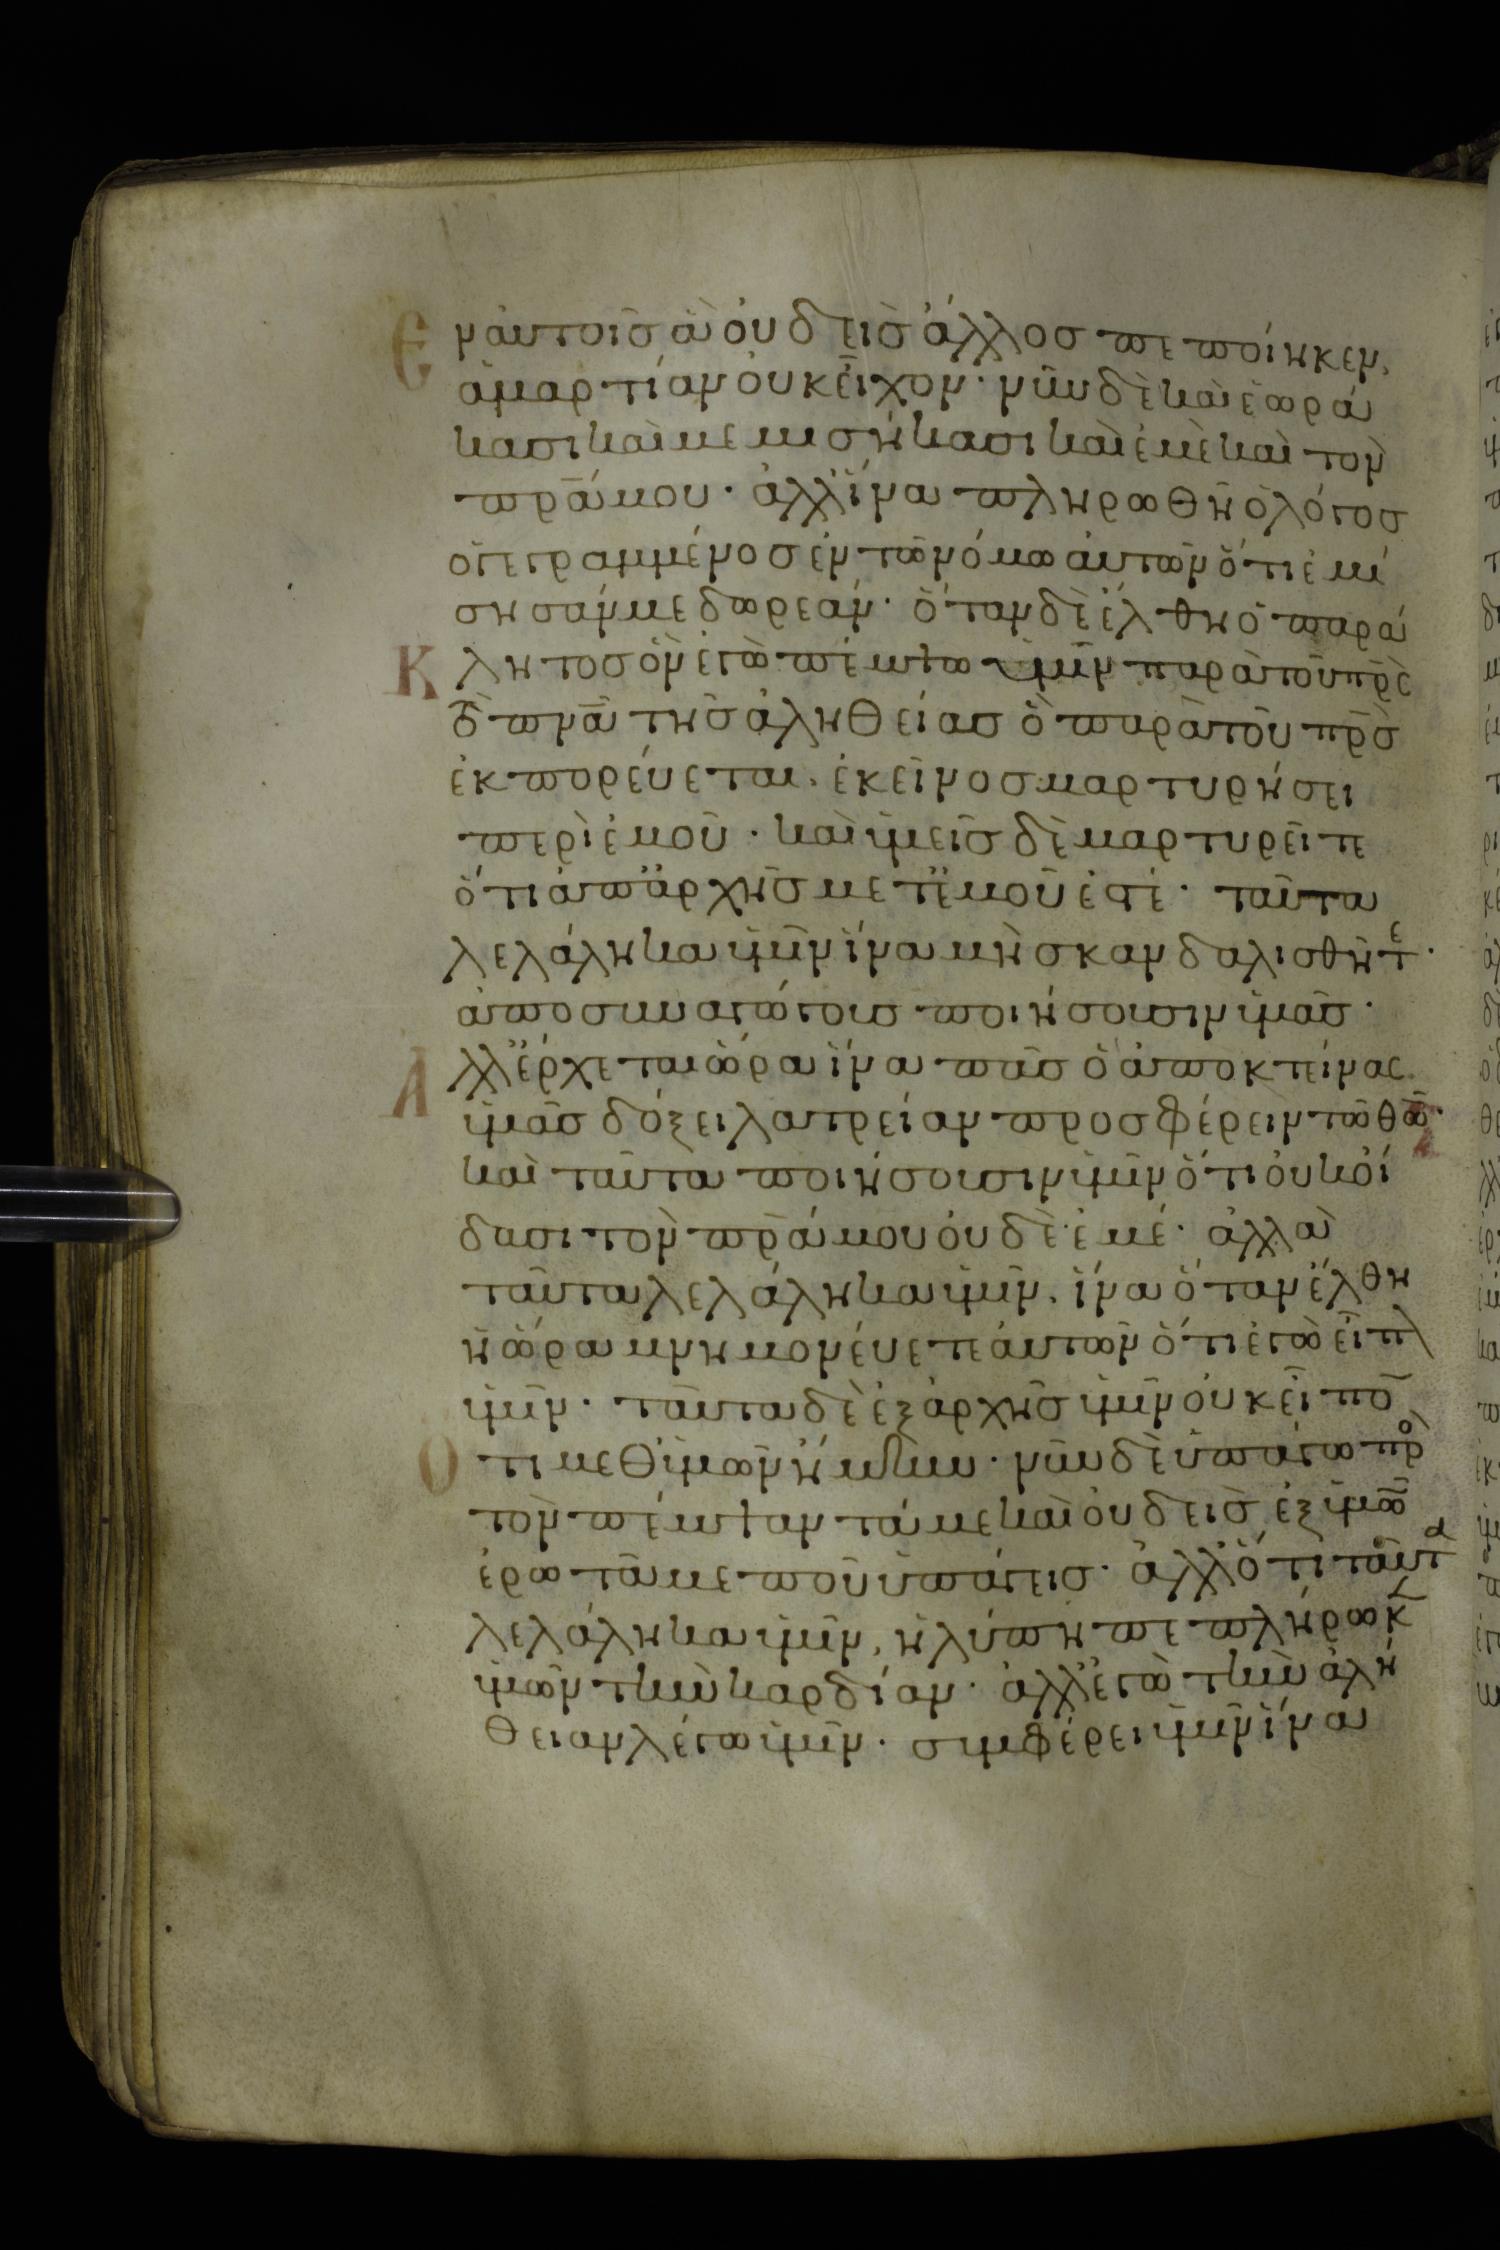 Ε ν αὐτοῖς ἃ οὐδεὶς ἄλλος πεποίηκεν,
ἁμαρτίαν οὐκ εἶχον· νῦν δὲ καὶ ἑωρά
κασι καὶ μεμισήκασι καὶ ἐμὲ καὶ τὸν
π̅ρ̅α̅ μου· ἀλλ' ἵνα πληρωθῆ ὁ λόγος
ὁ γεγραμμένος ἐν τῶ νόμω αὐτῶν ὅτι ἐμί
σησάν με δωρεάν· ὅταν δὲ ἔλθη ὁ παρά
Κ λητος ὃν ἐγὼ πέμψω ὑμῖν παρὰ τοῦ π̅ρ̅ς̅
τὸ π̅ν̅α̅ τῆς ἀληθείας ὃ παρὰ τοῦ π̅ρ̅ς̅
ἐκπορεύεται, ἐκεῖνος μαρτυρήσει
περὶ ἐμοῦ· καὶ ὑμεῖς δὲ μαρτυρεῖτε
ὅτι ἀπ' ἀρχῆς μετ' ἐμοῦ ἐστέ· ταῦτα
λελάληκα ὑμῖν ἵνα μὴ σκανδαλισθῆτε·
ἀποσυναγώγους ποιήσουσιν ὑμᾶς·
Α λλ' ἔρχεται ὥρα ἵνα πᾶς ὁ ἀποκτείνας
ὑμᾶς δόξει λατρείαν προσφέρειν τῶ θ̅ω̅·
καὶ ταῦτα ποιήσουσιν ὑμῖν ὅτι οὐκ οἴ
δασι τὸν π̅ρ̅α̅ μου οὐδὲ ἐμέ· ἀλλὰ
ταῦτα λελάληκα ὑμῖν, ἵνα ὅταν ἔλθη
ἡ ὥρα μνημονεύετε αὐτῶν ὅτι ἐγὼ εἶπ
ὑμῖν· ταῦτα δὲ ἐξ ἀρχῆς ὑμῖν οὐκ εἶπο
Ο τι μεθ' ὑμῶν ἤμην· νῦν δὲ ὑπάγω πρ
τὸν πέμψαντά με καὶ οὐδεὶς ἐξ ὑμῶ
ἐρωτᾶ με ποῦ ὑπάγεις· ἀλλ' ὅτι ταῦτα
λελάληκα ὑμῖν, ἡ λύπη πεπλήρωκ
ὑμῶν τὴν καρδίαν· ἀλλ' ἐγὼ τὴν ἀλή
θειαν λέγω ὑμῖν· συμφέρει ὑμῖν ἵνα